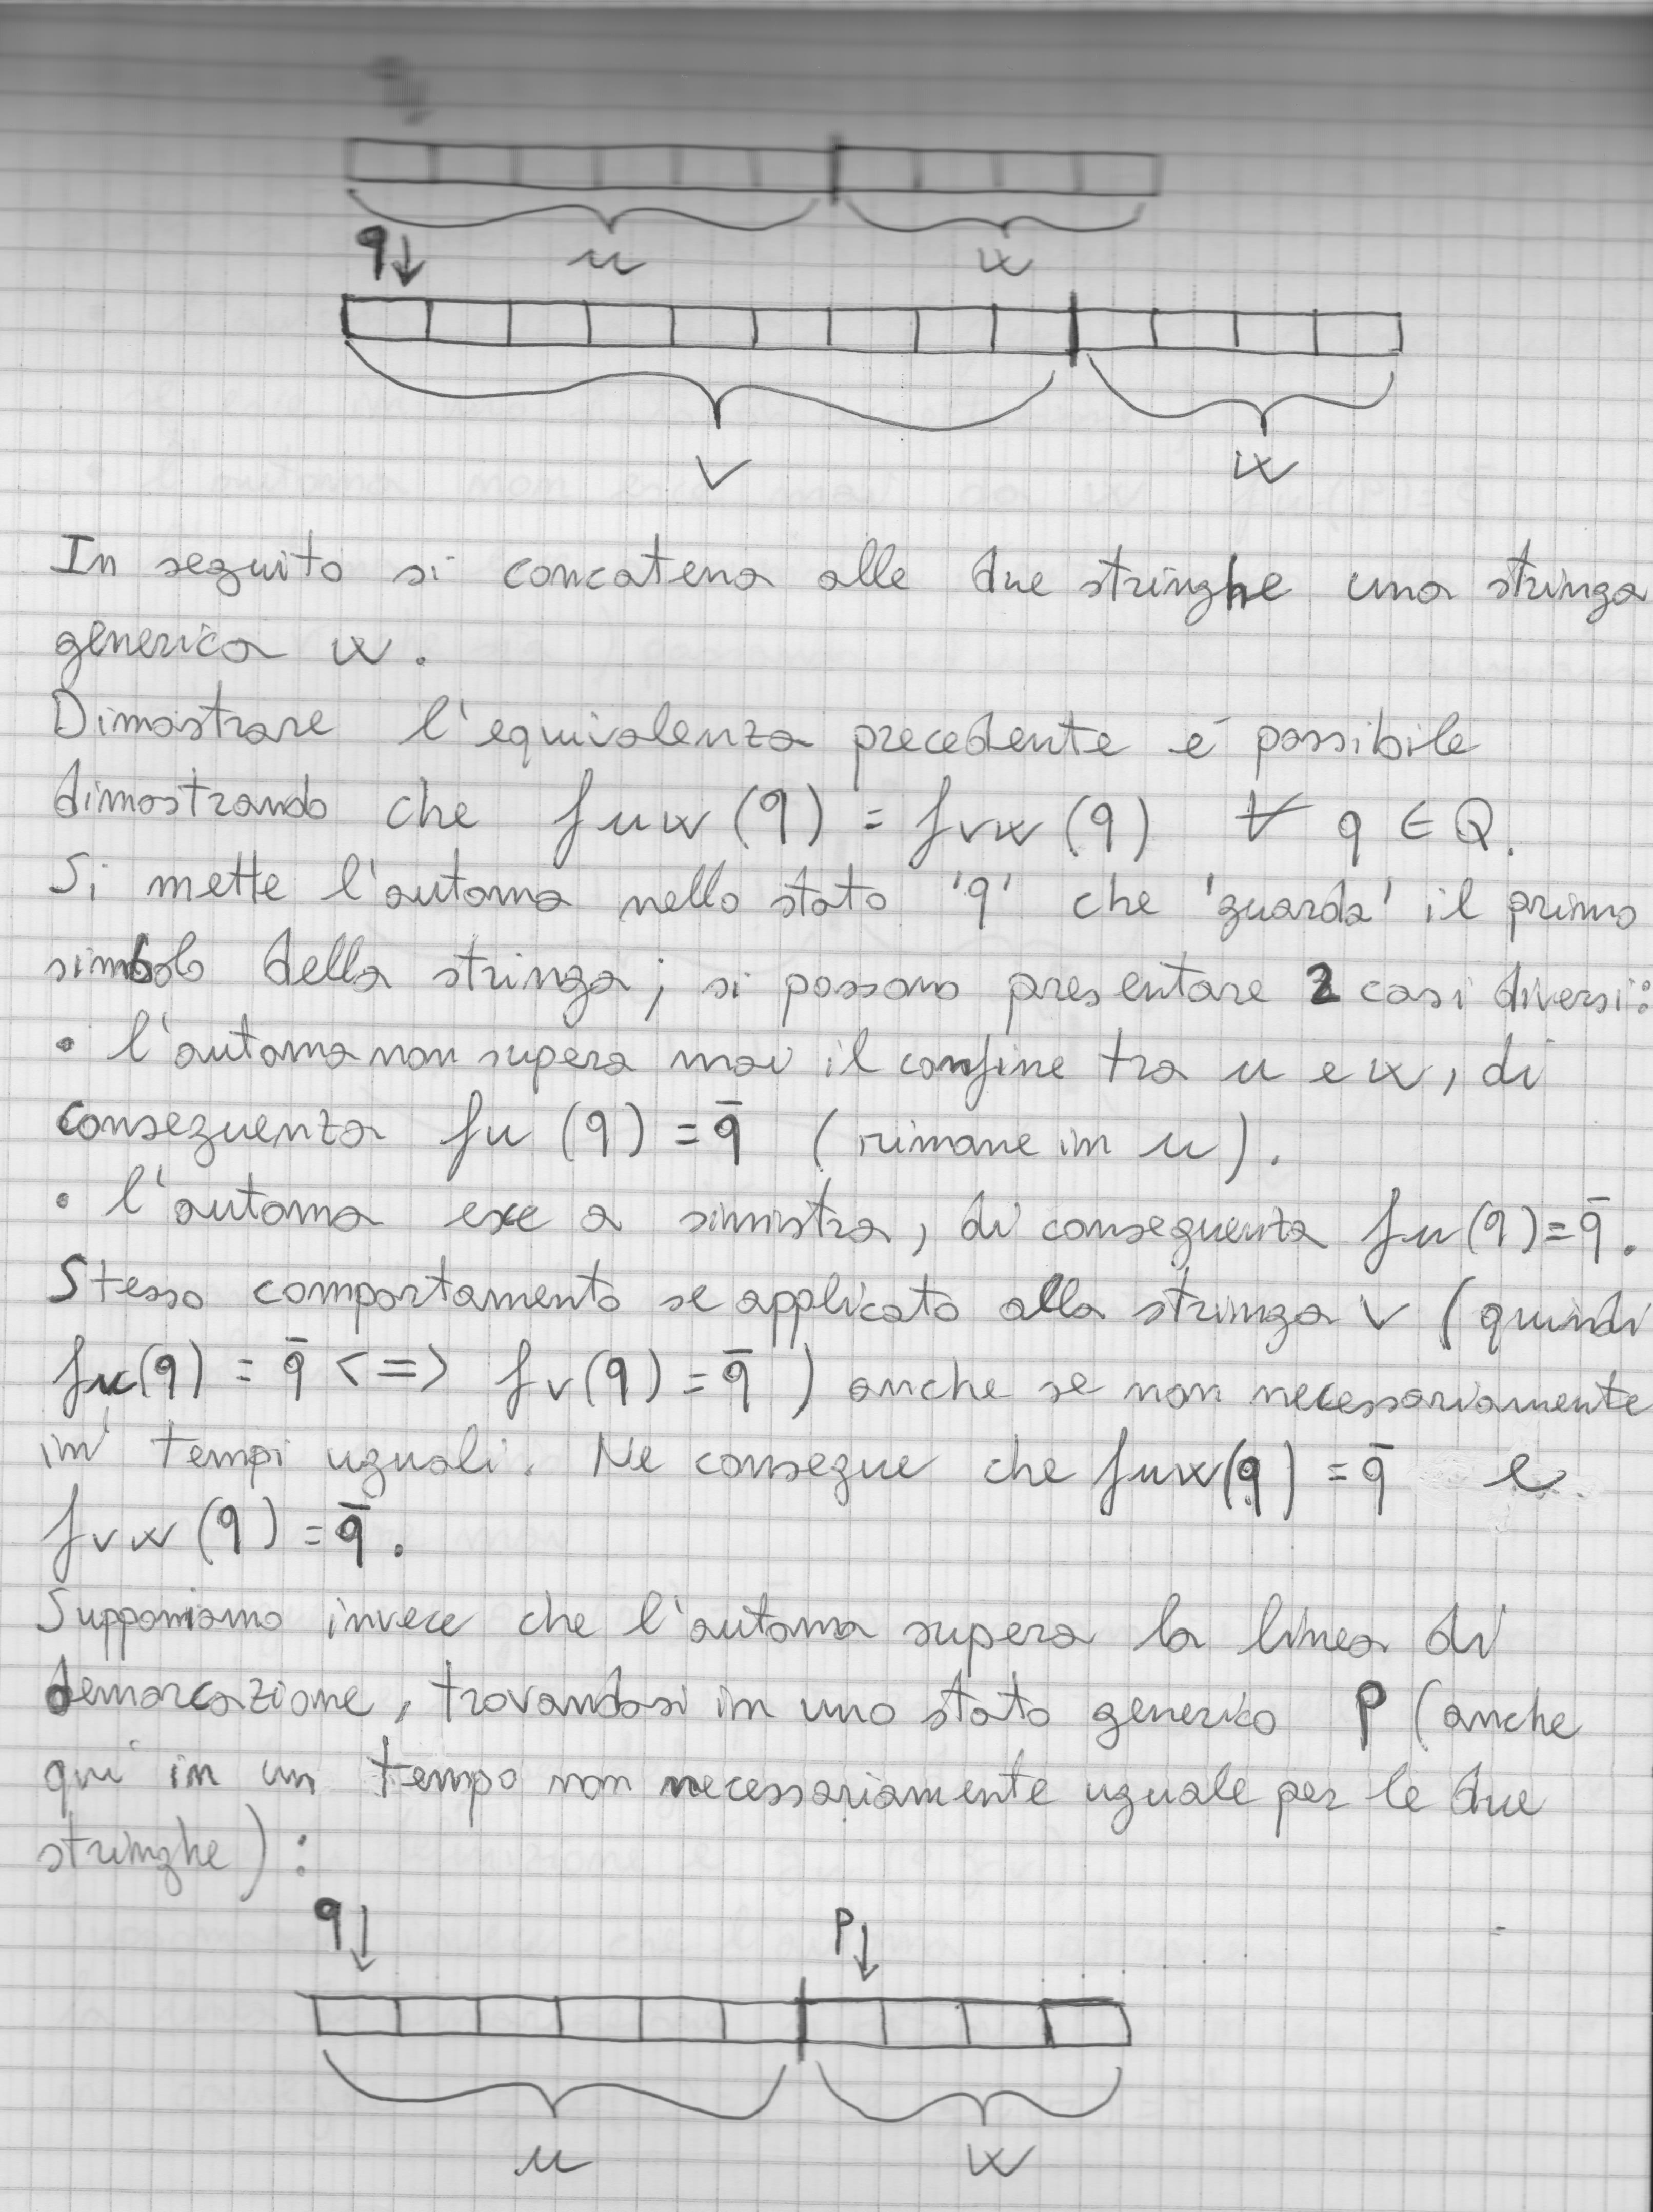 u w
q↓
v w
In seguito si concatena alle due stringhe una stringa
generica w.
Dimostrare l'equivalenza precedente é possibile
dimostrando che fuw(q) = fvw(q) ∀ q ∈ Q.
Si mette l'automa nello stato 'q' che 'guarda' il primo
simbolo della stringa; si possono presentare 2 casi diversi:
• l'automa non supera mai il confine tra u e w, di
conseguenza fu(q) = q̄ (rimane in u).
• l'automa esce a sinistra, di conseguenza fu(q) = q̄.
Stesso comportamento se applicato alla stringa v (quindi
fu(q) = q̄ <=> fv(q) = q̄ ) anche se non necessariamente
in tempi uguali. Ne consegue che fuw(q) = q̄ e
fvw(q) = q̄.
Supponiamo invece che l'automa supera la linea di
demarcazione, trovandosi in uno stato generico p (anche
qui in un tempo non necessariamente uguale per le due
stringhe):
q↓ p↓
u w